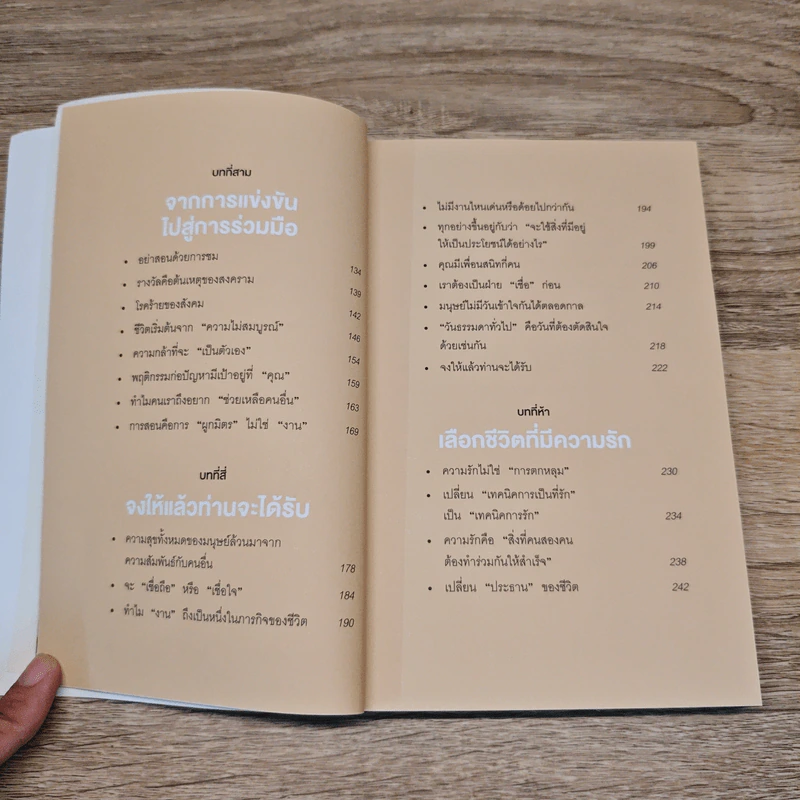 บทที่สาม
จากการแข่งขัน
ไปสู่การร่วมมือ
• อย่าสอนด้วยการชม 134
• รางวัลคือต้นเหตุของสงคราม 139
• โรคร้ายของสังคม 142
• ชีวิตเริ่มต้นจาก “ความไม่สมบูรณ์” 146
• ความกล้าที่จะ “เป็นตัวเอง” 154
• พฤติกรรมก่อปัญหามีเป้าอยู่ที่ “คุณ” 159
• ทำไมคนเราถึงอยาก “ช่วยเหลือคนอื่น” 163
• การสอนคือการ “ผูกมิตร” ไม่ใช่ “งาน” 169
บทที่สี่
จงให้แล้วท่านจะได้รับ
• ความสุขทั้งหมดของมนุษย์ล้วนมาจาก
ความสัมพันธ์กับคนอื่น 178
• จะ “เชื่อถือ” หรือ “เชื่อใจ” 184
• ทำไม “งาน” ถึงเป็นหนึ่งในภารกิจของชีวิต 190
• ไม่มีงานไหนเด่นหรือด้อยไปกว่ากัน 194
• ทุกอย่างขึ้นอยู่กับว่า “จะใช้สิ่งที่มีอยู่
ให้เป็นประโยชน์ได้อย่างไร” 199
• คุณมีเพื่อนสนิทกี่คน 206
• เราต้องเป็นฝ่าย “เชื่อ” ก่อน 210
• มนุษย์ไม่มีวันเข้าใจกันได้ตลอดกาล 214
• “วันธรรมดาทั่วไป” คือวันที่ต้องตัดสินใจ
ด้วยเช่นกัน 218
• จงให้แล้วท่านจะได้รับ 222
บทที่ห้า
เลือกชีวิตที่มีความรัก
• ความรักไม่ใช่ “การตกหลุม” 230
• เปลี่ยน “เทคนิคการเป็นที่รัก”
เป็น “เทคนิคการรัก” 234
• ความรักคือ “สิ่งที่คนสองคน
ต้องทำร่วมกันให้สำเร็จ” 238
• เปลี่ยน “ประธาน” ของชีวิต 242